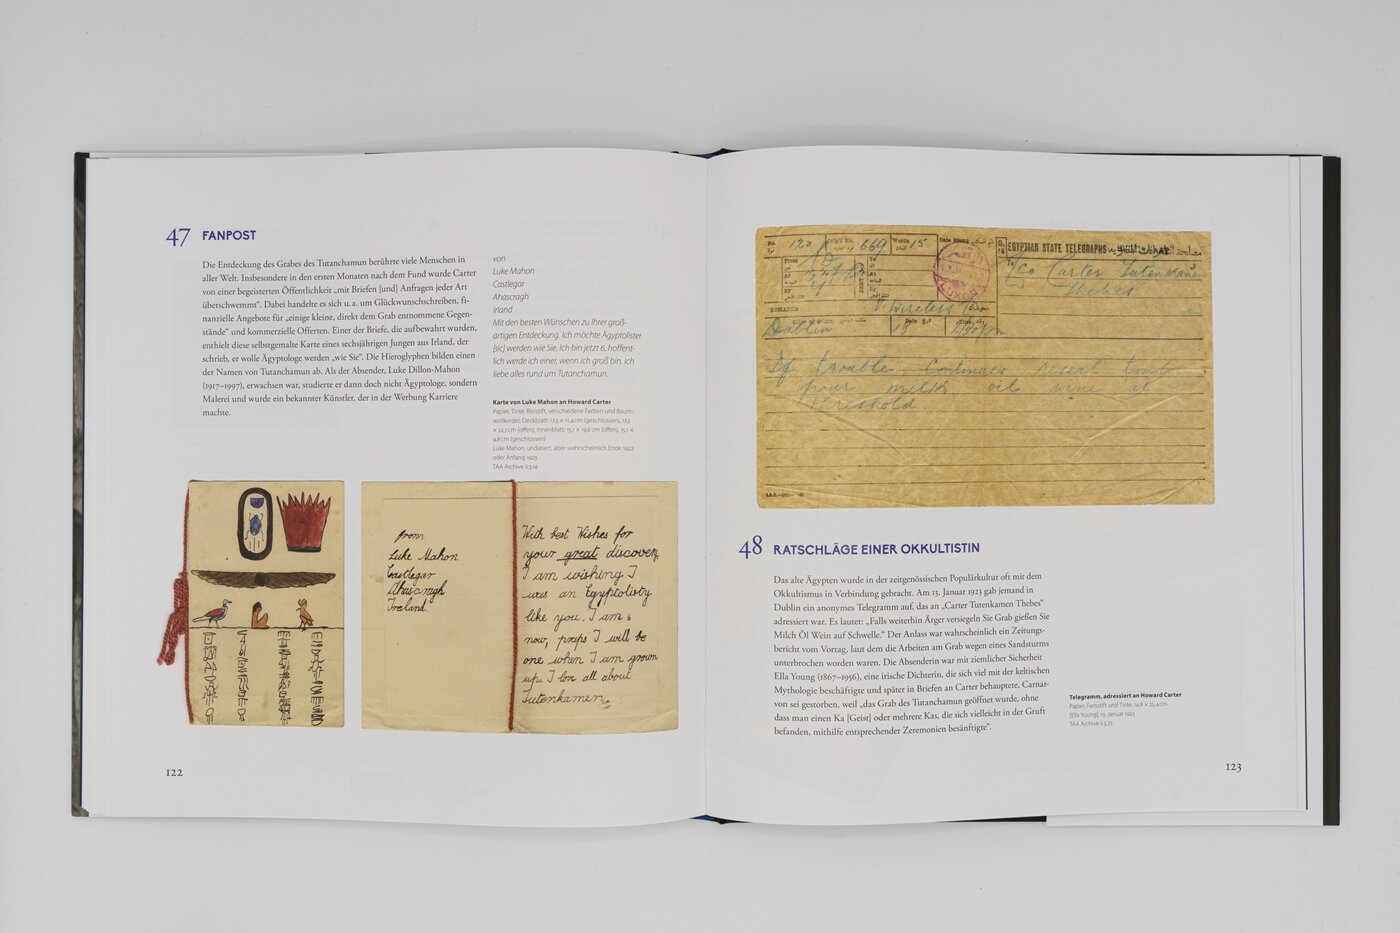 47 FANPOST
Die Entdeckung des Grabes des Tutanchamun berührte viele Menschen in
aller Welt. Insbesondere in den ersten Monaten nach dem Fund wurde Carter
von einer begeisterten Öffentlichkeit „mit Briefen [und] Anfragen jeder Art
überschwemmt“. Dabei handelte es sich u. a. um Glückwunschschreiben, fi-
nanzielle Angebote für „einige kleine, direkt dem Grab entnommene Gegen-
stände“ und kommerzielle Offerten. Einer der Briefe, die aufbewahrt wurden,
enthielt diese selbstgemalte Karte eines sechsjährigen Jungen aus Irland, der
schrieb, er wolle Ägyptologe werden „wie Sie“. Die Hieroglyphen bilden einen
der Namen von Tutanchamun ab. Als der Absender, Luke Dillon-Mahon
(1917–1997), erwachsen war, studierte er dann doch nicht Ägyptologe, sondern
Malerei und wurde ein bekannter Künstler, der in der Werbung Karriere
machte.
von
Luke Mahon
Castlegar
Ahascragh
Irland
Mit den besten Wünschen zu Ihrer groß-
artigen Entdeckung. Ich möchte Ägyptolister
[sic] werden wie Sie. Ich bin jetzt 6, hoffent-
lich werde ich einer, wenn ich groß bin. Ich
liebe alles rund um Tutanchamun.
Karte von Luke Mahon an Howard Carter
Papier, Tinte, Bleistift, verschiedene Farben und Baum-
wollkordel; Deckblatt: 17,3 × 11,4 cm (geschlossen), 17,3
× 22,7 cm (offen); Innenblatt: 15,1 × 19,6 cm (offen), 15,1 ×
9,8 cm (geschlossen)
Luke Mahon, undatiert, aber wahrscheinlich Ende 1922
oder Anfang 1923
TAA Archive ii.3.14
from
Luke Mahon
Castlegar
Ahascragh
Ireland.
With best Wishes for
your great discovery
I am wishing I
was an Egyptolisty
like you. I am 6
now, praps I will be
one when I am grown
up. I love all about
Tutenkamen.
122
No. 120 Orig'l No. 669 Words 15 Date Stamp
EGYPTIAN STATE TELEGRAPHS
From
To
At
By
SENT
To
At
By
To C/o Carter Tutenkamen
Thebes
REMARKS V wireless
Dublin 18
If trouble continues reseal tomb
pour milk oil wine at
threshold.
48 RATSCHLÄGE EINER OKKULTISTIN
Das alte Ägypten wurde in der zeitgenössischen Populärkultur oft mit dem
Okkultismus in Verbindung gebracht. Am 13. Januar 1923 gab jemand in
Dublin ein anonymes Telegramm auf, das an „Carter Tutenkamen Thebes“
adressiert war. Es lautet: „Falls weiterhin Ärger versiegeln Sie Grab gießen Sie
Milch Öl Wein auf Schwelle.“ Der Anlass war wahrscheinlich ein Zeitungs-
bericht vom Vortag, laut dem die Arbeiten am Grab wegen eines Sandsturms
unterbrochen worden waren. Die Absenderin war mit ziemlicher Sicherheit
Ella Young (1867–1956), eine irische Dichterin, die sich viel mit der keltischen
Mythologie beschäftigte und später in Briefen an Carter behauptete, Carnar-
von sei gestorben, weil „das Grab des Tutanchamun geöffnet wurde, ohne
dass man einen Ka [Geist] oder mehrere Kas, die sich vielleicht in der Gruft
befanden, mithilfe entsprechender Zeremonien besänftigte“.
Telegramm, adressiert an Howard Carter
Papier, Farbstift und Tinte, 14,8 × 25,4 cm
[Ella Young], 13. Januar 1923
TAA Archive ii.3.25
123